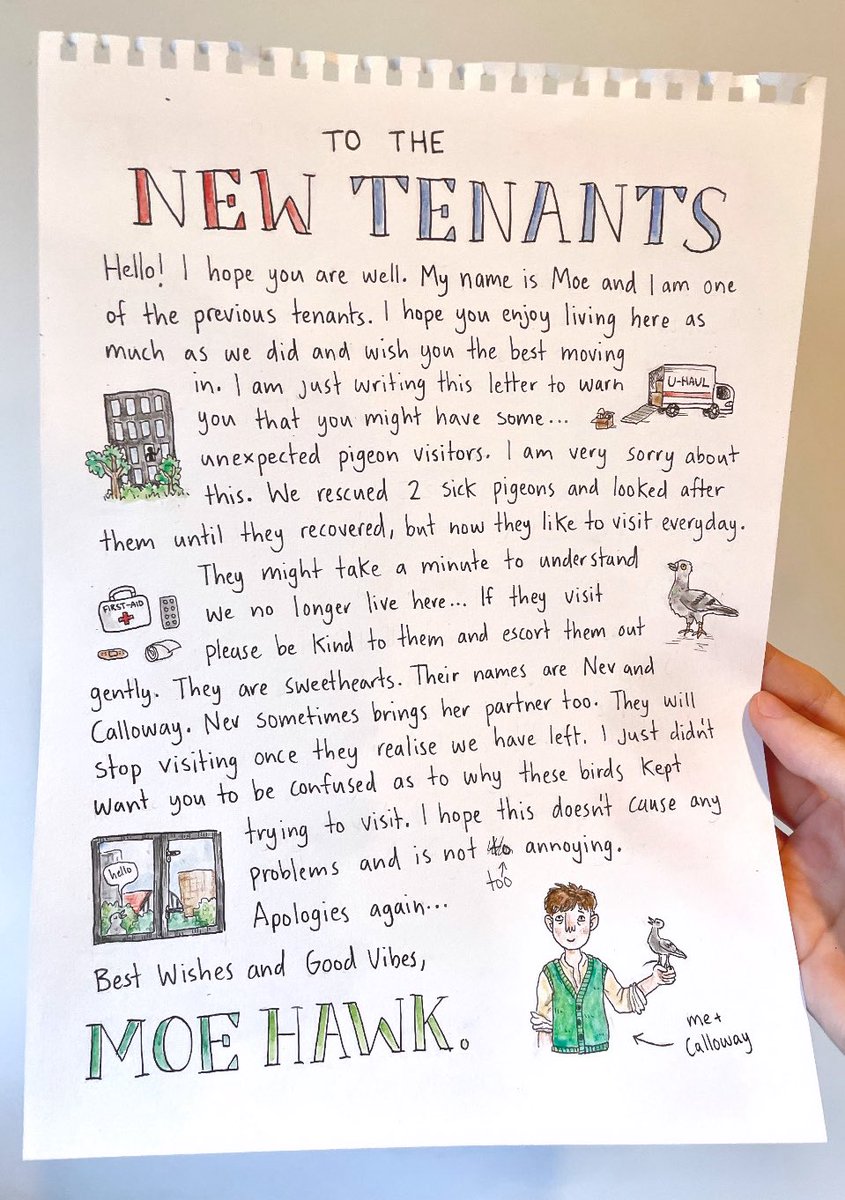 TO THE
NEW TENANTS
Hello! I hope you are well. My name is Moe and I am one
of the previous tenants. I hope you enjoy living here as
much as we did and wish you the best moving
in. I am just writing this letter to warn
U-HAUL
you that you might have some...
unexpected pigeon visitors. I am very sorry about
this. We rescued 2 sick pigeons and looked after
them until they recovered, but now they like to visit everyday.
They might take a minute to understand
FIRST-AID
we no longer live here... If they visit
please be kind to them and escort them out
gently. They are sweethearts. Their names are Nev and
Calloway. Nev sometimes brings her partner too. They will
stop visiting once they realise we have left. I just didn't
want you to be confused as to why these birds kept
trying to visit. I hope this doesn't cause any
hello
problems and is not annoying.
too
Apologies again...
Best Wishes and Good Vibes,
MOE HAWK.
me +
Calloway